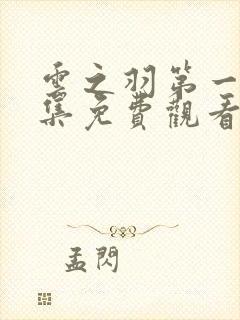 雲之羽第一
集免費觀看
孟閃